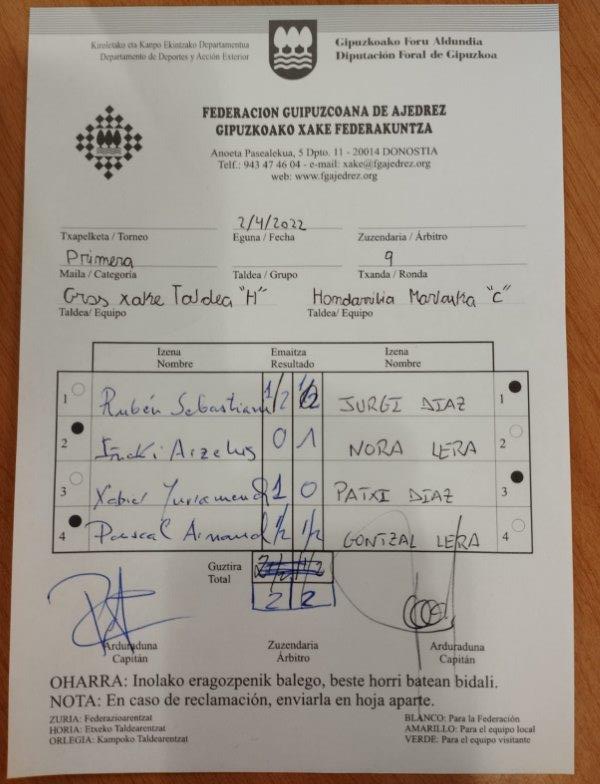 Kiroletako eta Kanpo Ekintzako Departamentua
Departamento de Deportes y Acción Exterior
Gipuzkoako Foru Aldundia
Diputación Foral de Gipuzkoa
FEDERACION GUIPUZCOANA DE AJEDREZ
GIPUZKOAKO XAKE FEDERAKUNTZA
Anoeta Pasealekua, 5 Dpto. 11 - 20014 DONOSTIA
Telf.: 943 47 46 04 - e-mail: xake@fgajedrez.org
web: www.fgajedrez.org
2/4/2022
Txapelketa / Torneo Eguna / Fecha Zuzendaria / Árbitro
Primera 9
Maila / Categoría Taldea / Grupo Txanda / Ronda
Gros Xake Taldea "H" Hondarribia "C"
Taldea/ Equipo Taldea/ Equipo
Izena Emaitza Izena
Nombre Resultado Nombre
1 Rubén Sebastian 1/2 1/2 JURGI DIAZ 1
2 Iñaki Arzelus 0 1 NORA LERA 2
3 Xabier 1 0 PATXI DIAZ 3
4 Pascal Arnaud 1/2 1/2 GONTZAL LERA 4
Guztira
Total
2 2
Arduraduna Zuzendaria Arduraduna
Capitán Árbitro Capitán
OHARRA: Inolako eragozpenik balego, beste horri batean bidali.
NOTA: En caso de reclamación, enviarla en hoja aparte.
ZURIA: Federazioarentzat
HORIA: Etxeko Taldearentzat
ORLEGIA: Kampoko Taldearentzat
BLANCO: Para la Federación
AMARILLO: Para el equipo local
VERDE: Para el equipo visitante